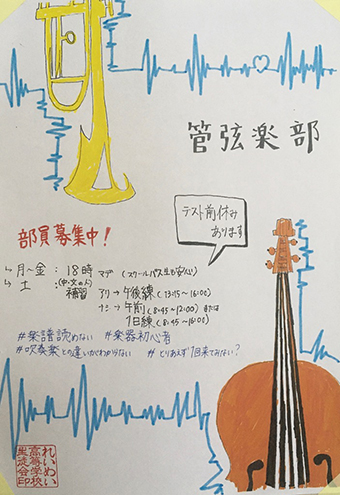 管弦楽部
テスト前休み
あります
部員募集中！
↳ 月～金：18時マデ（スクールバス生も安心）
↳ 土：（中・文の人）補習
アリ→午後練（13:15～16:00）
ナシ→午前（8:45～12:00）または
1日練（8:45～16:00）
#楽譜読めない #楽器初心者
#吹奏楽との違いがわからない #とりあえず1回来てみない？
れいめい
高等学校
生徒会印